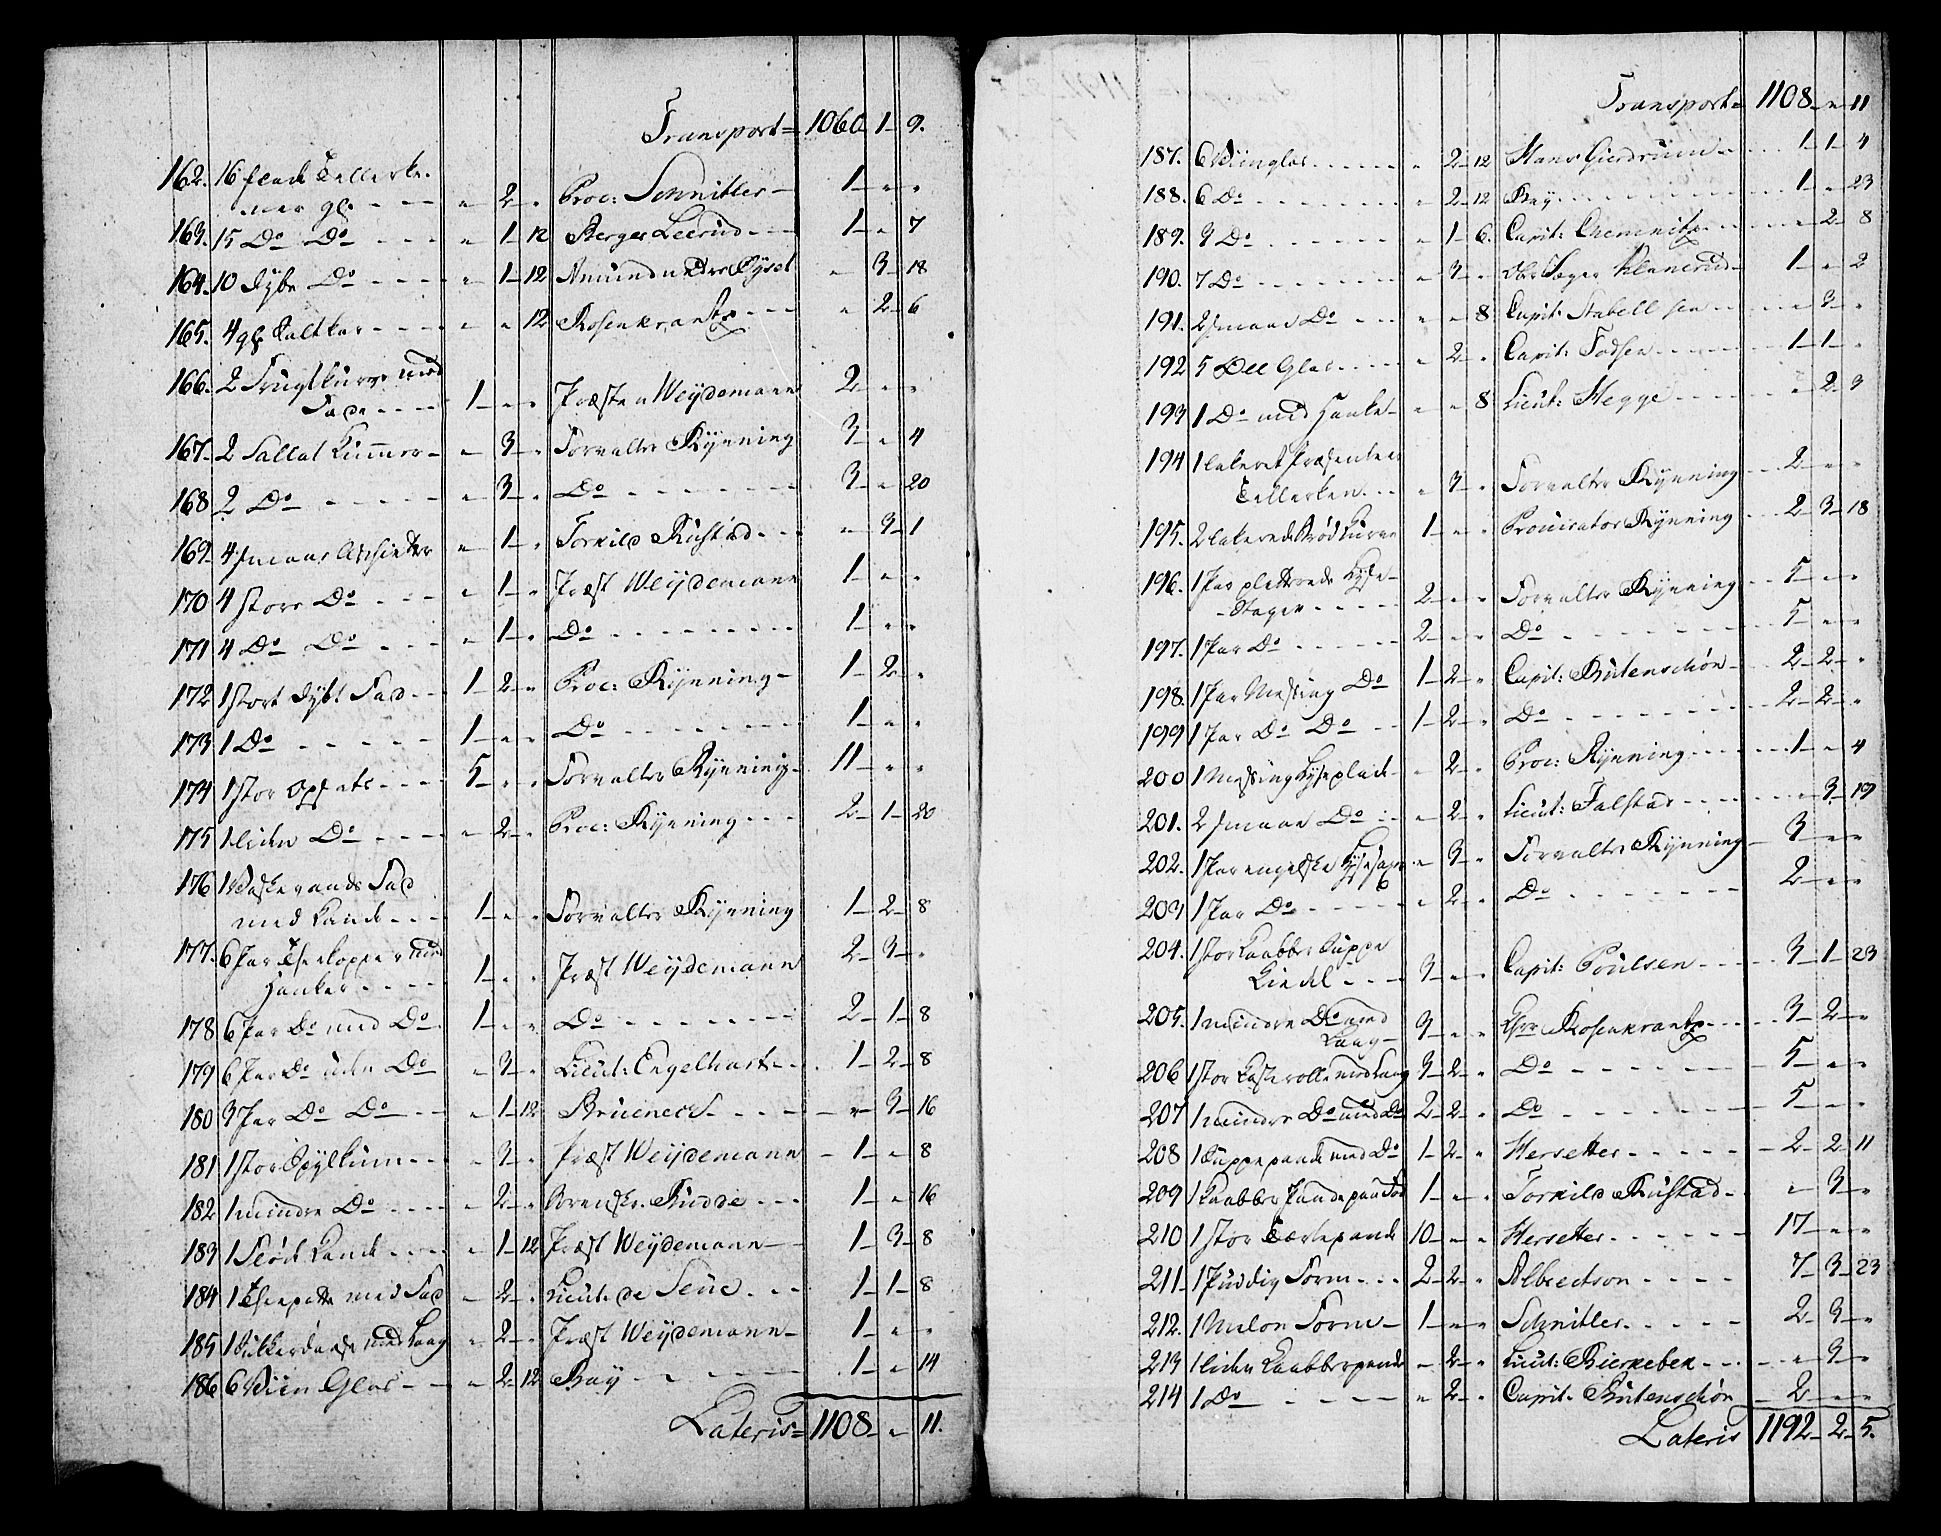 Transport = 1060 - 1 - 9.
162. 16 flade Tellerke-
ner gl. - - " 2 - " Proc: Schnitler - 1 - " "
163. 15 Do Do - - - " 1 - 12 Berger Leerud - - - 1 - " 7
164. 10 dybe Do - - - - " 1 - 12 Amund - " 3 - 18
165. 4 gl. Saltkar - - - - " " 12 Rosenkrantz - - - " 2 - 6
166. 2 Frugtkurve med
Fade - - - - 1 - " " Præsten Weydemann 2 - " "
167. 2 Sallat Kummer - " 3 - " Forvalter Rynning 3 - " 4
168 2 Do - - - - - " 3 - " Do - - - - - - - 3 - " 20
169. 4 smaae Assietter " 1 - " Torkild Rustad - - - " 3 - 1
170 4 store Do - - - " 1 - " Præst Weydemann 1 - " "
171 4 Do Do - - - " 1 - " Do - - - - - - - 1 - " "
172 1 stort dybt Fad - - 1 - 2 - " Proc: Rynning - 1 - 2 - "
173 1 Do - - - - - 1 - " " Do - - - - - - - 1 - " "
174 1 stor Opsats - - - 5 - " " Forvalter Rynning - 11 - " "
175 1 liden Do - - - - " 2 - " Proc: Rynning - - - 2 - 1 - 20
176 1 Vaskevands Fad
med Kande - - - 1 - " " Forvalter Rynning 1 - 2 - 8
177. 6 Par Theekopper med
Hanker - - - - 1 - " " Præst Weydemann 2 - 3 - "
178 6 Par Do med Do - 1 - " " Do - - - - - - - 2 - 1 - 8
179 6 Par Do uden Do " 3 - " Lieut: Engelhart - - . 1 - 2 - 8
180 3 Par Do Do - - - " 1 - 12 Bruenech - - - - - " 3 - 16
181 1 stor Spylkum - - - " 3 - " Præst Weydemann - 1 - " 8
182 1 mindre Do - - - - " 2 - " Budde - - - 1 - " 16
183 1 Fløde Kande - - - - " 1 - 12 Præst Weydemann - 1 - 3 - 8
184 1 Theepotte med Fad " 2 - " Lieut: de Seue - - - 1 - 1 - 8
185 1 Sukkerdaase med Laag " 2 - " Præst Weydemann - 1 - " "
186 6 Viin Glas - - " 2 - 12 Bay - - - - - - 1 - " 14
Lateris = 1108 - " 11.
Transport = 1108 - " 11
187. 6 Viinglas - - - - - " 2 - 12 Hans Gierdrum - - - 1 - 1 - 4
188. 6 Do - - - - - - " 2 - 12 Bay - - - - - - - 1 - " 23
189. 3 Do - - - - - - " 1 - 6. Capit: Chemnitz - - - " 2 - 8
190. 7 Do - - - - - - " 3 - " Ole - 1 - " 2
191. 2 smaae Do - - - " " 8 Capit: Stabell sen - - - - " 3 - "
192 5 Øll Glas - - - - " 2 - " Capit: Todsen - - - - 1 - 1 - "
193 1 Do med Hanke - " " 8 Lieut: Hegge - - - - - " 2 - 3
194 1 lakeret Præsenteer
Tellerken - - - " 3 - " Forvalter Rynning - - 2 - " "
195. 2 lakerede Brød Kurve 1 - " " Procurator Rynning - - 2 - 3 - 18
196. 1 Par pletterede Lyse-
- Stager - - - - - 2 - " " Forvalter Rynning - - 5 - " "
197. 1 Par Do - - - - - 2 - " " Do - - - - - - - 5 - " "
198. 1 Par Messing Do 1 - 2 - " Capit: Butenschøn - - 2 - 2 - "
199 1 Par Do Do - - 1 - 2 - " Do - - - - - - - 2 - 2 - "
200 1 Messing Lyseplade - " 2 - " Proc: Rynning - - - - 1 - " 4
201. 2 smaae Do - - " 2 - " Lieut: Falstad - - - - - " 3 - 19
202. 1 Par engelske Lysesaxe " 3 - " Forvalter Rynning - 3 - " "
203 1 Par Do - - - - - " 2 - " Do - - - - - - - 2 - " "
204. 1 stor Kaabber Suppe
Kiedel - - - 3 - " " Capit: Poulsen - - - - 3 - 1 - 23
205. 1 mindre Do med
Laag - 3 - " " Rosenkrantz - - - - 3 - 2 - "
206 1 stor Kasterolle med Laag 3 - 2 - " Do - - - - - - - 5 - " "
207 1 mindre Do med Do 2 - 2 - " Do - - - - - - - 5 - " "
208 1 Suppepande med Do 1 - 2 - " Hersetter - - - - - 2 - 2 - 11
209 1 Kaabber Pande paa Fod 1 - " " Torkild Rustad - - " 3 - "
210 1 stor Tærtepande 10 - " " Hersetter - - - - - - 17 - " "
211 - 1 Pudding Form - - - 2 - 2 - " Albrechtson - - - - 7 - 3 - 23
212. 1 Melon Form - 1 - " " Schnitler - - - - - 2 - 3 - "
213 1 liden Kaabberpande - 2 - " Lieut: Bierkebek - - - - " 3 - "
214 1 Do - - - - " 2 - " Capit: Butenschøn - 2 - " "
Lateris 1192 - 2 - 5.